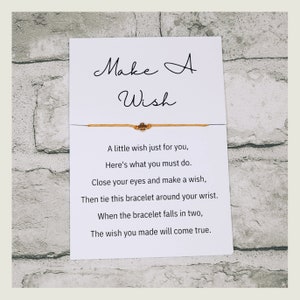 Make A
Wish
A little wish just for you,
Here's what you must do.
Close your eyes and make a wish,
Then tie this bracelet around your wrist.
When the bracelet falls in two,
The wish you made will come true.